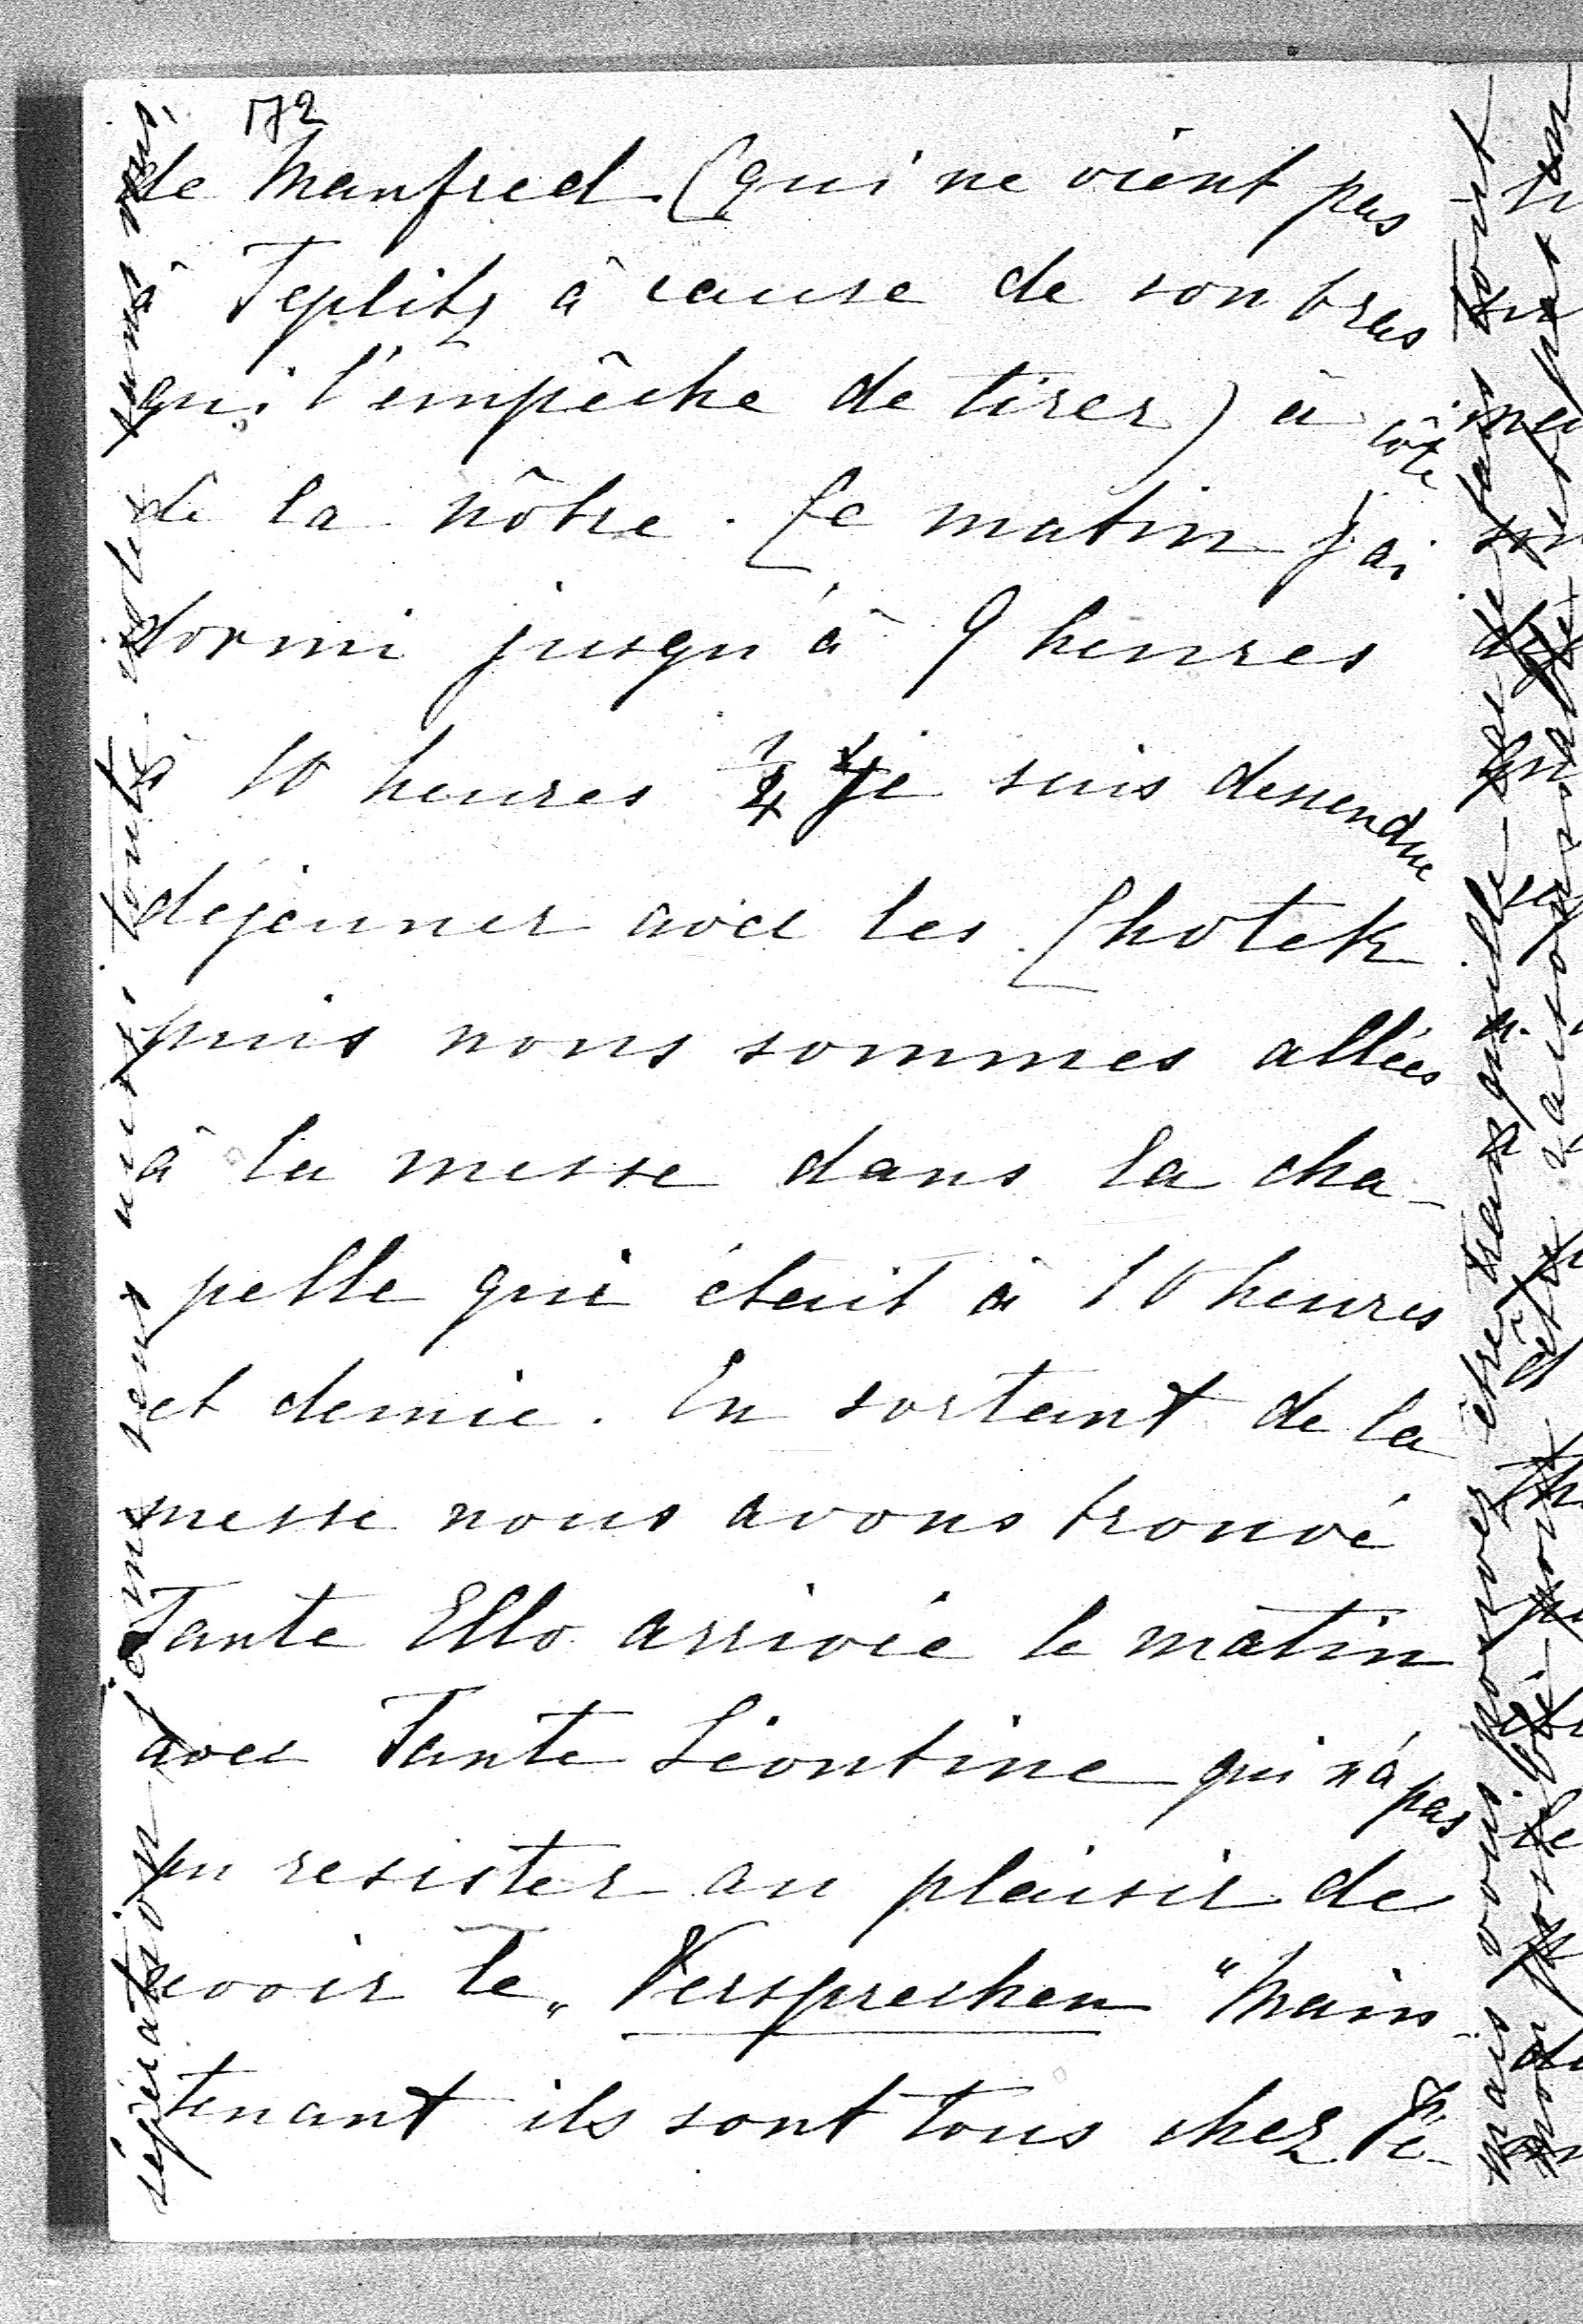 172
de Manfred (qui ne vient pas
à Teplitz à cause de son bras
qui l'empêche de tirer) à côté
de la nôtre. Ce matin j'ai
dormi jusqu'à 9 heures
à 10 heures 1/4 je suis dessendue
dejeuner avec les Chotek
puis nous sommes allées
à la messe dans la cha-
pelle qui était à 10 heures
et demie. En sortant de la
messe nous avons trouvé
Tante Ello arrivée le matin
avec Tante Léontine qui n'a pas
pu resister au plaisir de
revoir le „Versprechen" Main-
tenant ils sont tous chez Pé-
séparation
mais vous pouvez être tranquille que je fais tout